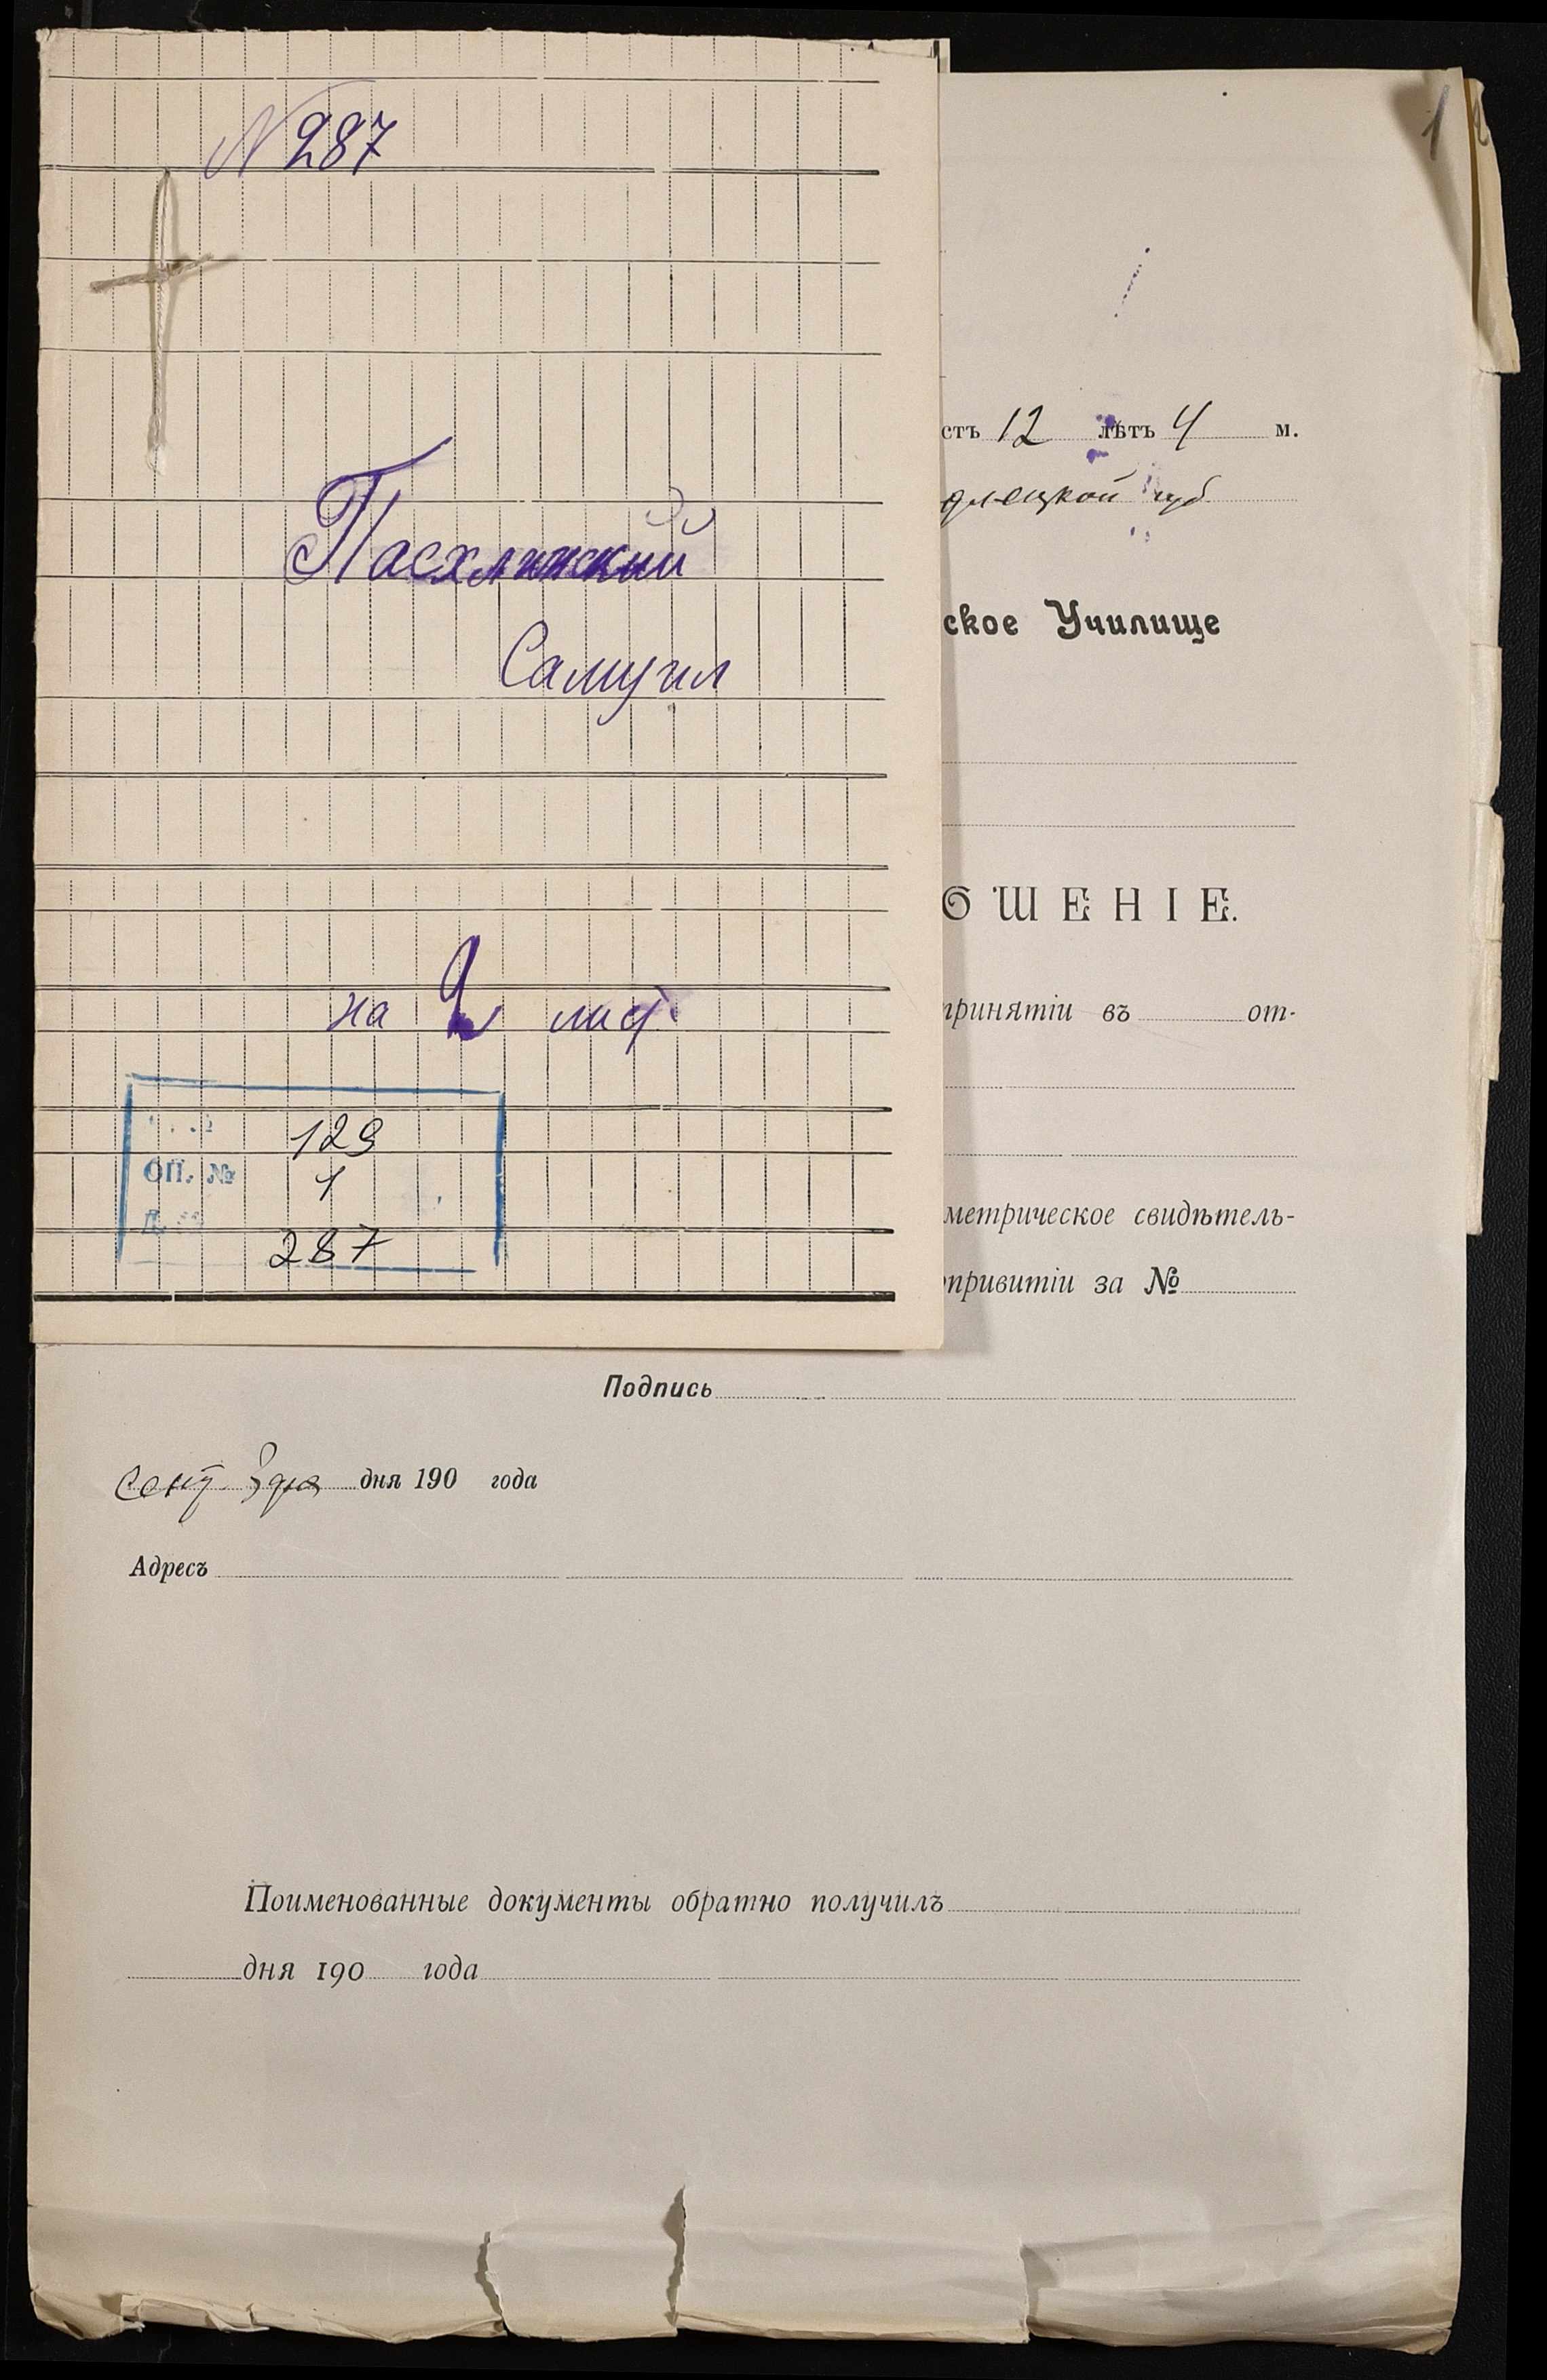 N 287
Пасхлинский
Самуил
на 2 лис.
129
ОП. № 1
287
1
стъ 12 лѣтъ 4 м.
длецкой губ
ское Училище
ОШЕНІЕ.
принятіи въ от-
метрическое свидѣтель-
опривитіи за №
Подпись
Сент. дня 190 года
Адресъ
Поименованные документы обратно получилъ
дня 190 года